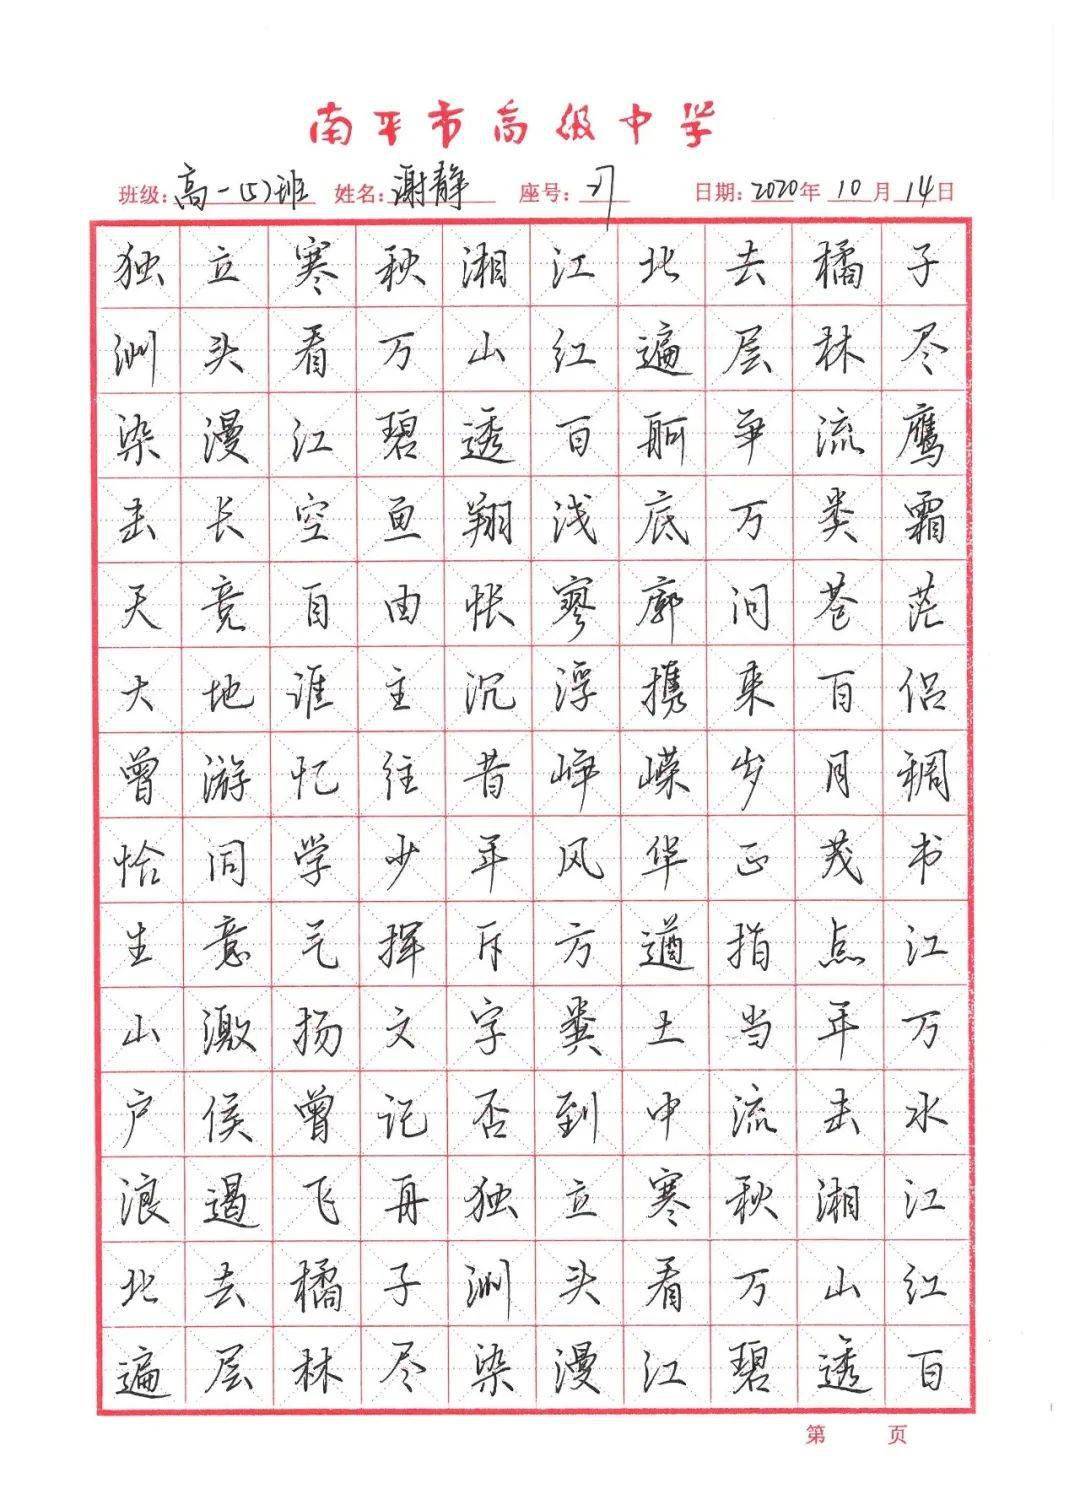 南平市高级中学
班级：高一(5)班 姓名：谢静 座号： 日期：2020年10月14日
独立寒秋湘江北去橘子
洲头看万山红遍层林尽
染漫江碧透百舸争流鹰
击长空鱼翔浅底万类霜
天竞自由怅寥廓问苍茫
大地谁主沉浮携来百侣
曾游忆往昔峥嵘岁月稠
恰同学少年风华正茂书
生意气挥斥方遒指点江
山激扬文字粪土当年万
户侯曾记否到中流击水
浪遏飞舟独立寒秋湘江
北去橘子洲头看万山红
遍层林尽染漫江碧透百
第 页